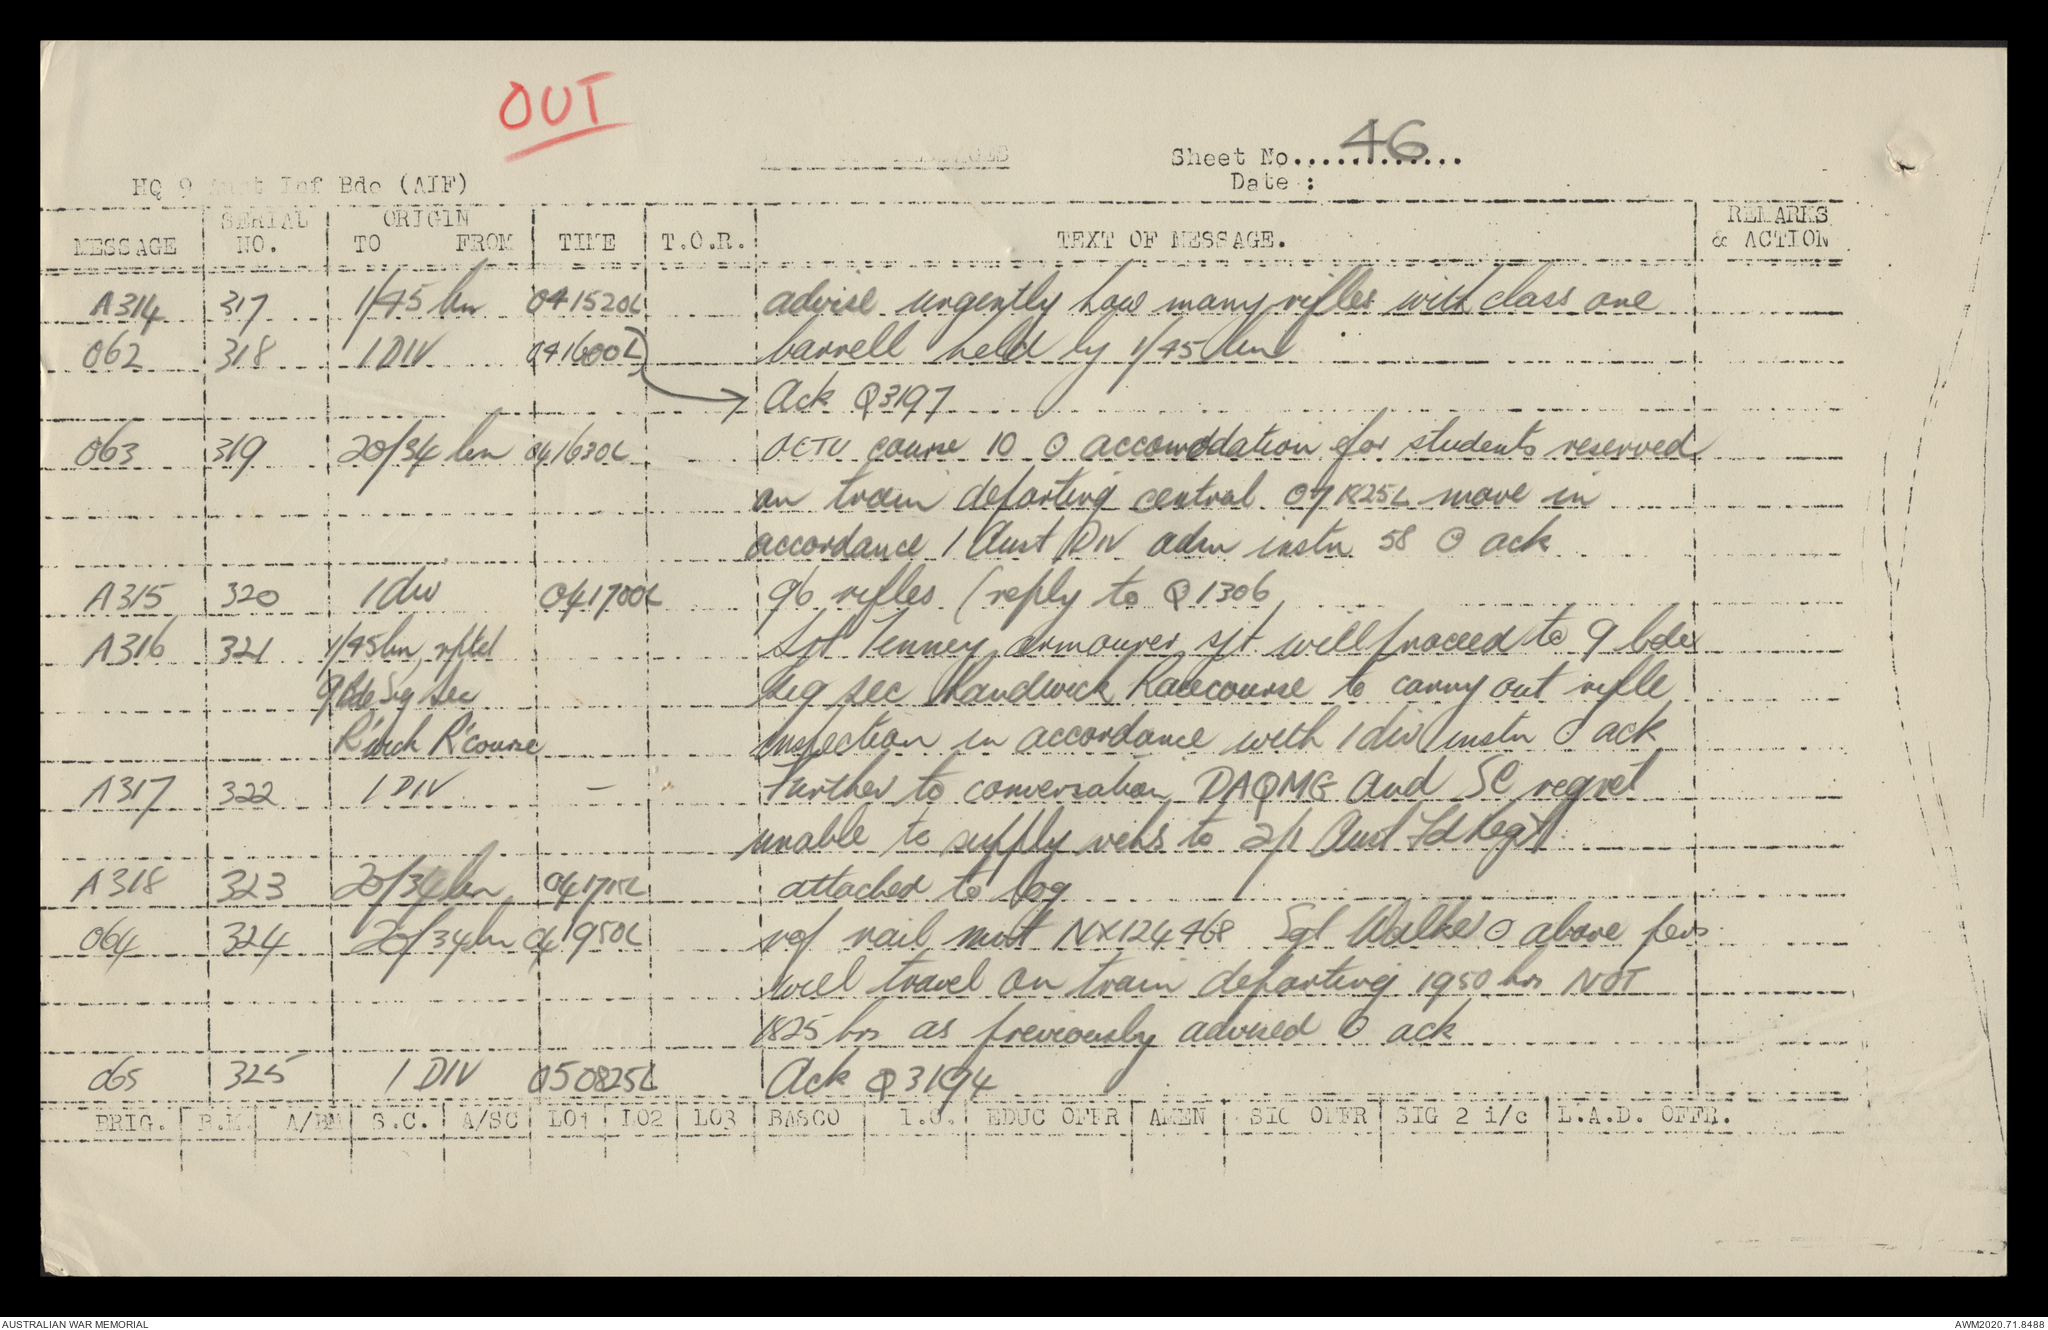 OUT
Sheet No.............
46
Date :
HQ 9 Aust Inf Bde (AIF)
MESSAGE SERIAL NO. ORIGIN TO FROM TIME T.O.R. TEXT OF MESSAGE. REMARKS & ACTION
A314 317 1/45 bn 041520L advise urgently how many rifles with class one
062 318 1 DIV 041600L barrell held by 1/45 bn
Ack Q3197
063 319 20/34 bn 041630L OCTU course 10 O accomodation for students reserved
on train departing central 071825L move in
accordance 1 Aust DIV adm instn 58 O ack
A315 320 1 div 041700L 96 rifles (reply to Q1306
A316 321 1/45 bn, rptd Sjt Tenney armourer sjt. will proceed to 9 bde
9 Bde Sig Sec sig sec Randwick Racecourse to carry out rifle
R'wick R'course inspection in accordance with 1 div instn O ack
A317 322 1 DIV - Further to conversation DAQMG and SC regret
unable to supply vehs to 2/1 Aust Fd Regt
A318 323 20/34 bn 041715L attached to log
064 324 20/34 bn 041950L ref rail mvt NX124468 Sgt Walker O above pers
will travel on train departing 1950 hrs NOT
1825 hrs as previously advised O ack
065 325 1 DIV 050825L Ack Q3194
BRIG. B.M. A/BM S.C. A/SC LO1 LO2 LO3 BASCO I.O. EDUC OFFR AMEN SIG OFFR SIG 2 i/c L.A.D. OFFR.
AUSTRALIAN WAR MEMORIAL
AWM2020.71.8488